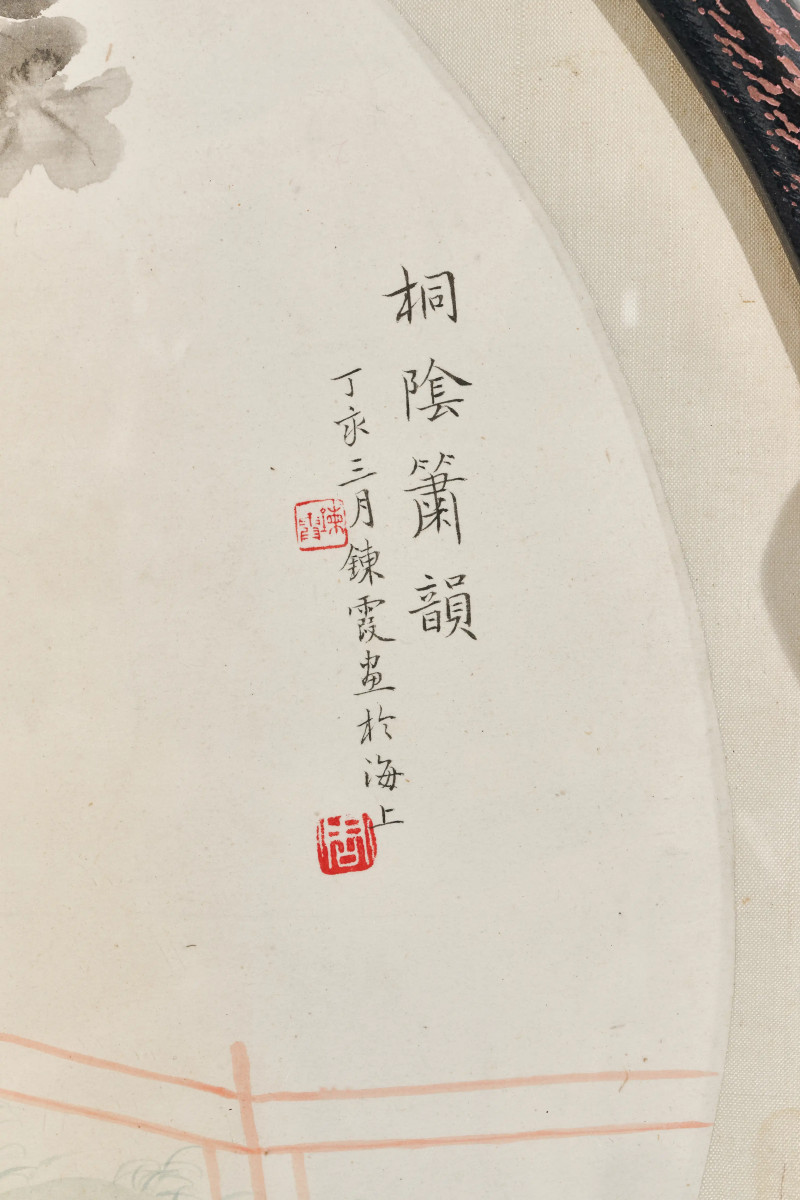 桐陰簫韻
丁亥三月鍊霞画於海上
鍊霞